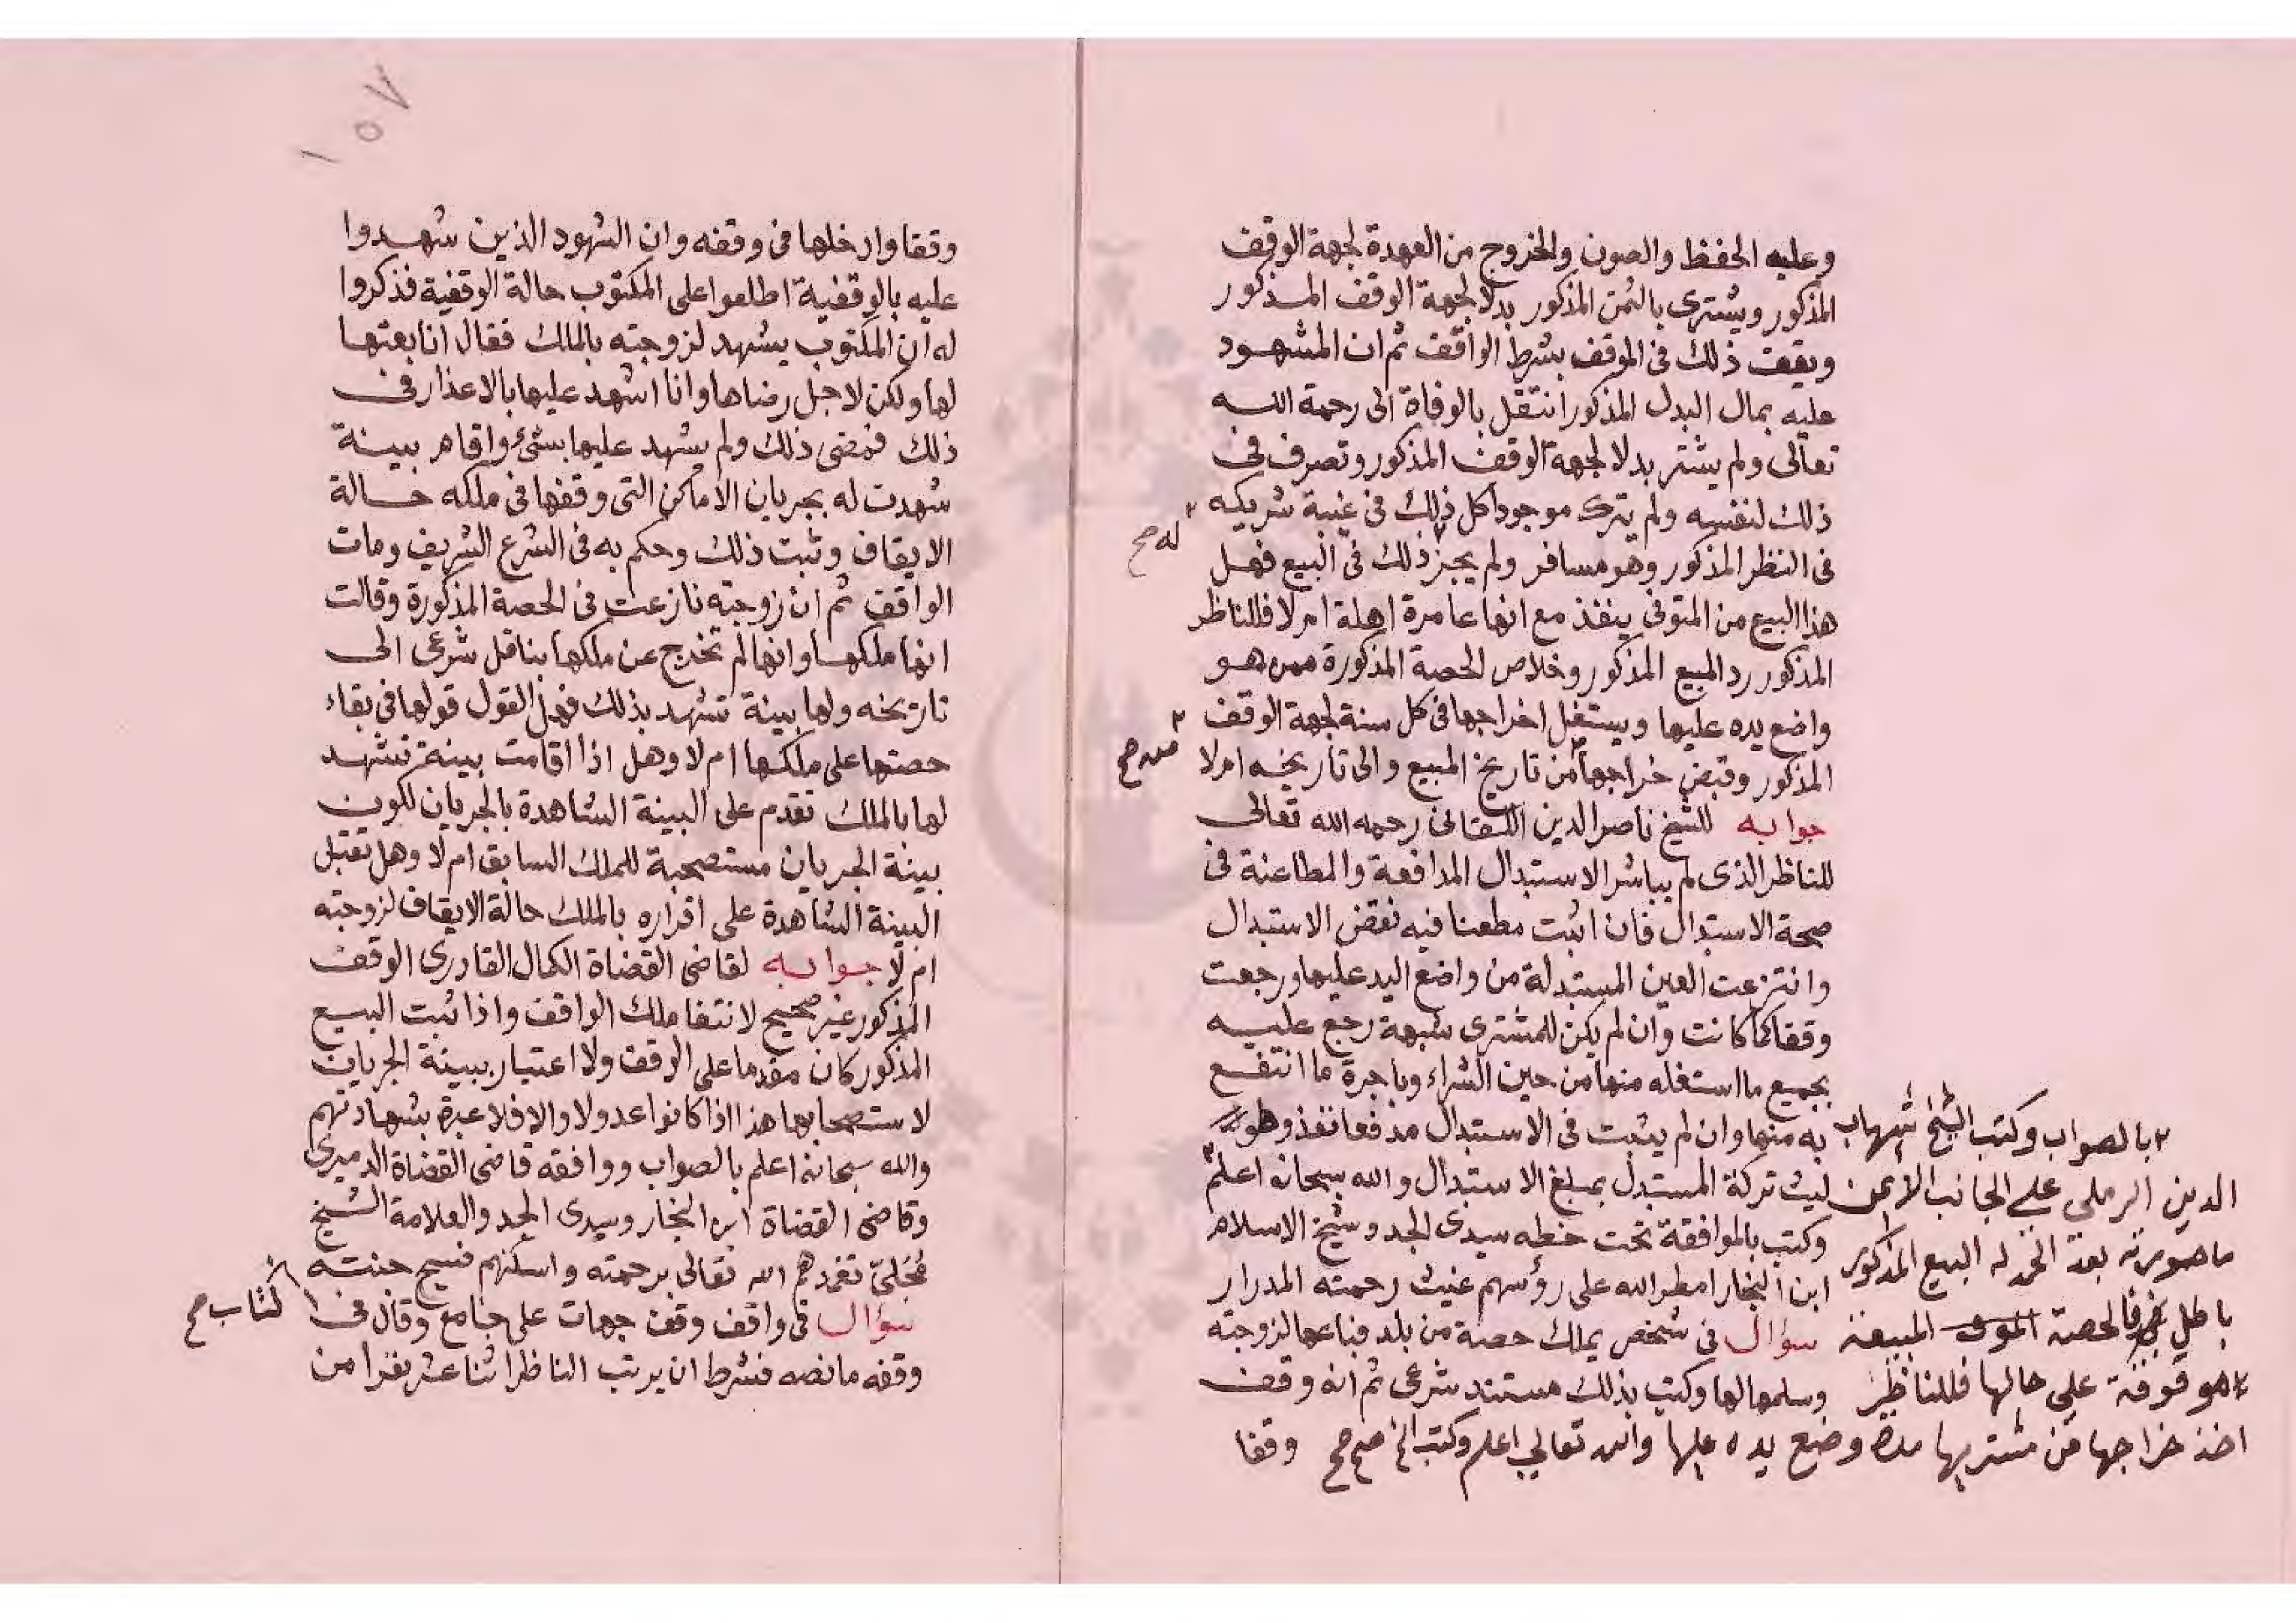 وعليه الحفظ والصون والخروج من العهدة لجهة الوقف
المذكور ويشترى بالثمن المذكور بدلا لجهة الوقف المذكور
ويقف ذلك فى الموقف بشرط الواقف ثم ان المشهود
عليه بمال البدل المذكور انتقل بالوفاة الى رحمة الله
تعالى ولم يشتر بدلا لجهة الوقف المذكور وتصرف فى
ذلك لنفسه ولم يترك موجودا كل ذلك فى غيبة شريكه
له صح
فى النظر المذكور وهو مسافر ولم يجز ذلك فى البيع فهل
هذا البيع من المتوفى ينفذ مع انها عامرة اهلة ام لا فللناظر
المذكور رد المبيع المذكور وخلاص الحصة المذكورة ممن هو
واضع يده عليها ويستغل اخراجها فى كل سنة لجهة الوقف
المذكور وقبض خراجها من تاريخ المبيع والى تاريخه ام لا
صح
جوابه للشيخ ناصر الدين اللقانى رحمه الله تعالى
للناظر الذى لم يباشر الاستبدال المدافعة والمطاعنة فى
صحة الاستبدال فان اثبت مطعنا فيه نقض الاستبدال
وانتزعت العين المستبدلة من واضع اليد عليها ورجعت
وقفا كما كانت وان لم يكن للمشترى شبهة رجع عليه
بجميع ما استغله منها من حين الشراء وباجرة ما انتفع
به منها وان لم يثبت فى الاستبدال مدفعا نفذ وطولب
ليث تركة المستبدل بمبلغ الاستبدال والله سبحانه اعلم
وكتب بالموافقة تحت خطه سيدى الجد وشيخ الاسلام
ابن النجار امطر الله على رؤسهم غيث رحمته المدرار
سؤال فى شخص يملك حصة من بلد فباعها لزوجته
وسلمها لها وكتب بذلك مستند شرعى ثم انه وقف
وقفا
بالصواب وكتب الشيخ شهاب
الدين الرملى على الجانب الايمن
ما صورته بعد الحمد لله البيع المذكور
باطل فالحصة المبيعة
موقوفة على حالها فللناظر
اخذ خراجها من مشتريها مدة وضع يده عليها والله تعالى اعلم وكتب الخ صح صح
١٥٧
وقفا وادخلها فى وقفه وان الشهود الذين شهدوا
عليه بالوقفية اطلعوا على المكتوب حالة الوقفية فذكروا
له ان المكتوب يشهد لزوجته بالملك فقال انا بعتها
لها ولكن لاجل رضاها وانا اشهد عليها بالاعذار فى
ذلك فمضى ذلك ولم يشهد عليها بشئ واقام بينة
شهدت له بجريان الاماكن التى وقفها فى ملكه حالة
الايقاف وثبت ذلك وحكم به فى الشرع الشريف ومات
الواقف ثم ان زوجته نازعت فى الحصة المذكورة وقالت
انها ملكها وانها لم تخرج عن ملكها بناقل شرعى الى
تاريخه ولها بينة تشهد بذلك فهل القول قولها فى بقاء
حصتها على ملكها ام لا وهل اذا اقامت بينة تشهد
لها بالملك تقدم على البينة الشاهدة بالجريان لكون
بينة الجريان مستصحبة للملك السابق ام لا وهل تقبل
البينة الشاهدة على اقراره بالملك حالة الايقاف لزوجته
ام لا جوابه لقاضى القضاة الكمال القادرى الوقف
المذكور غير صحيح لانتفا ملك الواقف واذا ثبت البيع
المذكور كان مقدما على الوقف ولا اعتبار ببينة الجريان
لاستصحابها هذا اذا كانوا عدولا والا فلا عبرة بشهادتهم
والله سبحانه اعلم بالصواب ووافقه قاضى القضاة الدميرى
وقاضى القضاة ابن النجار وسيدى الجد والعلامة الشيخ
مُحَلىّ تغمدهم الله تعالى برحمته واسكنهم فسيح جنته
سؤال فى واقف وقف جهات على جامع وقال فى
كتاب صح
وقفه ما نصه فشرط ان يرتب الناظر اثنا عشر نفرا من